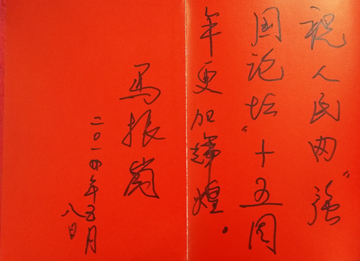 祝人民网“强
国论坛”十五周
年更加辉煌。
马振岗
二〇一四年五月
八日